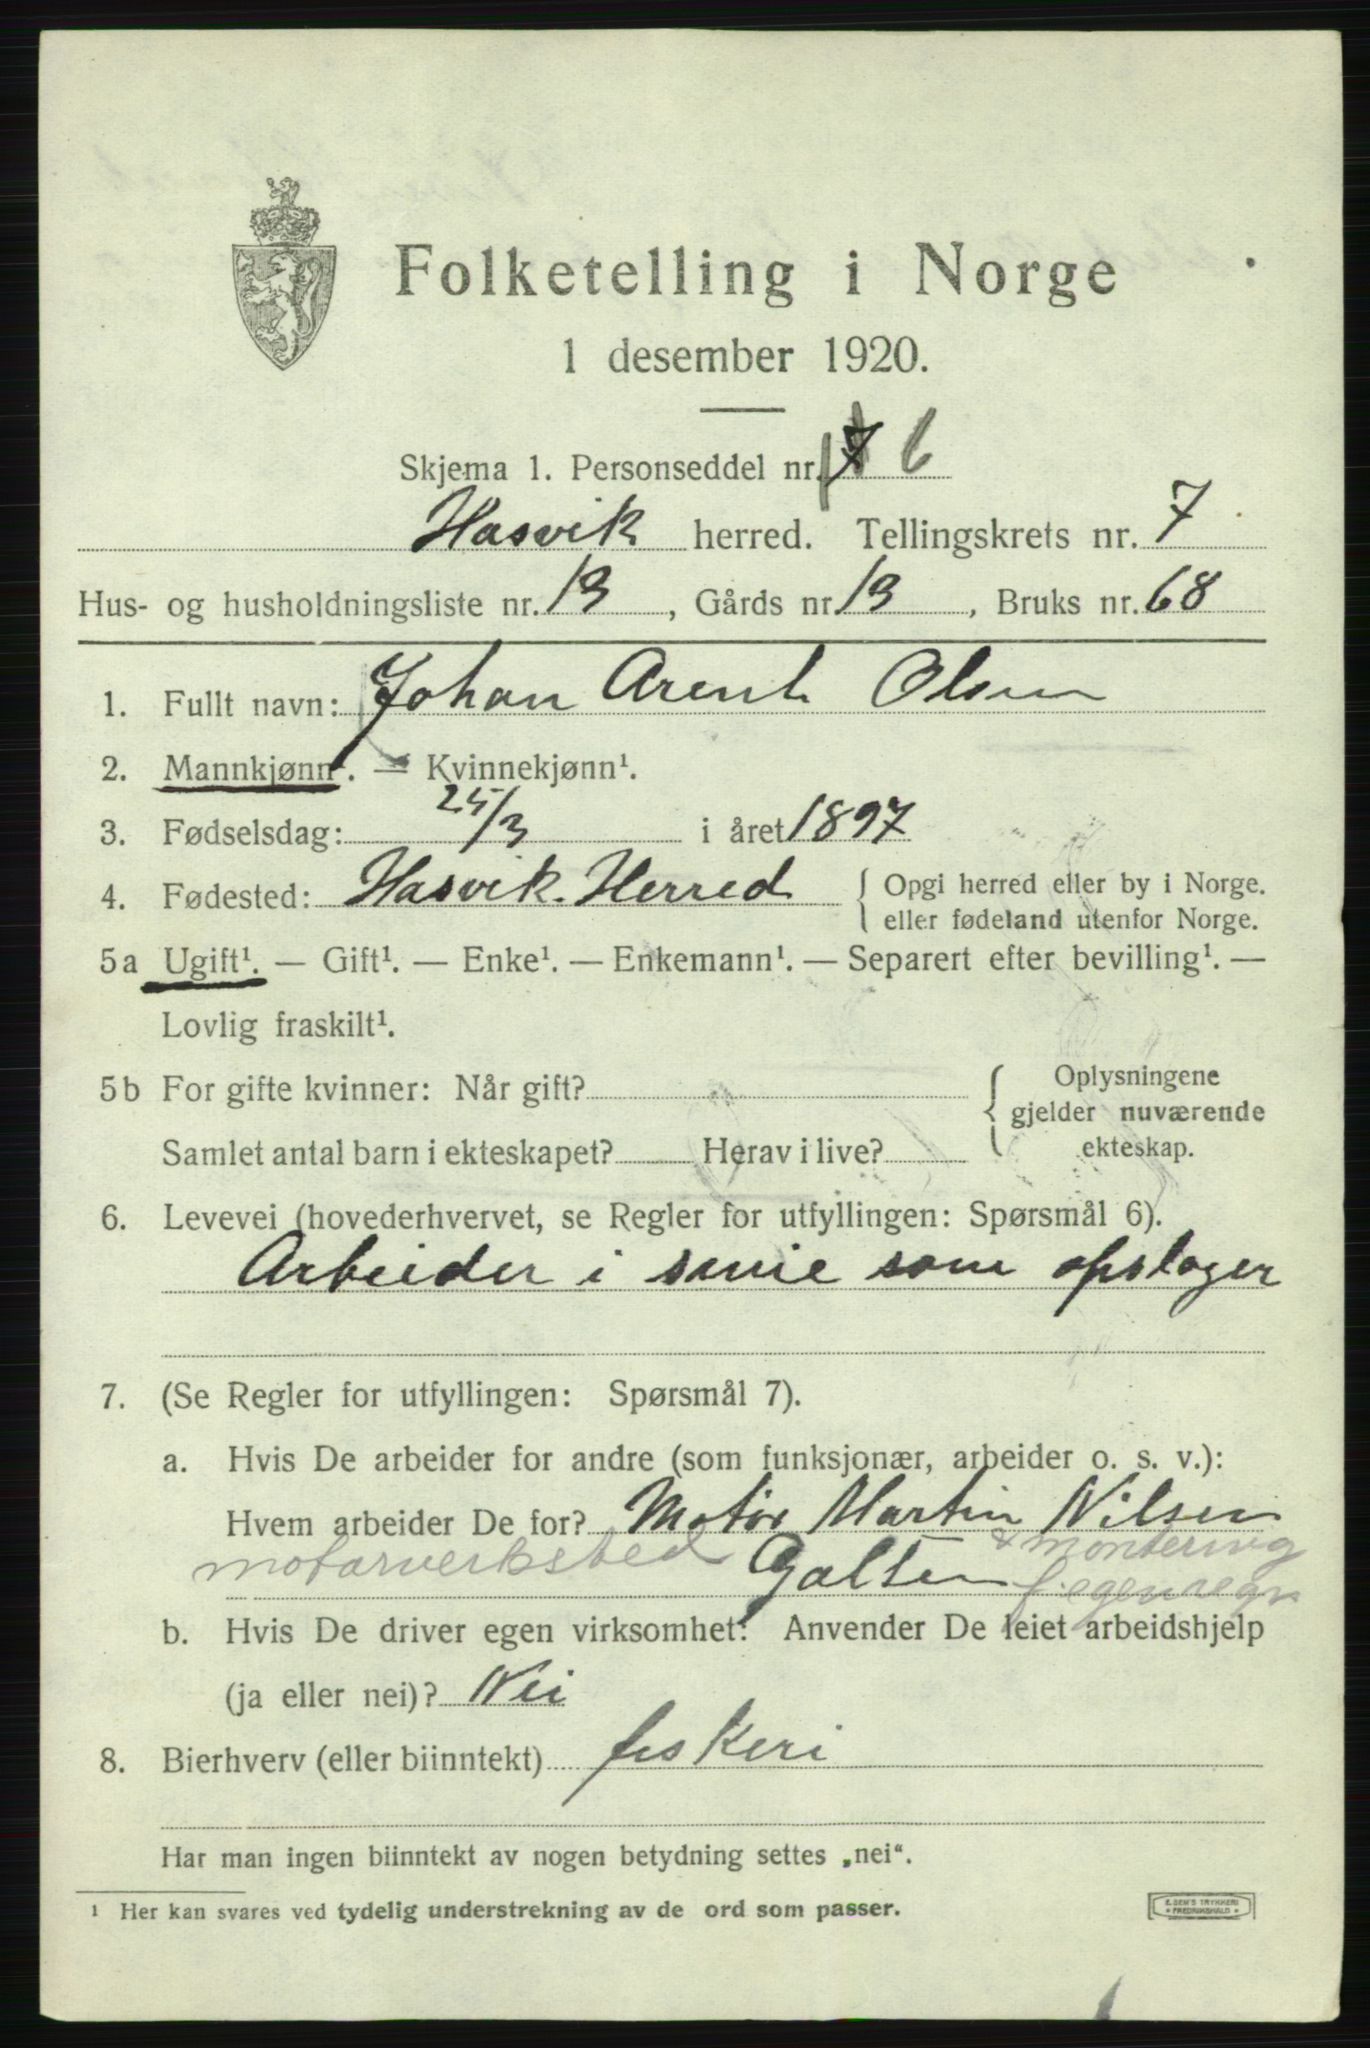 Folketelling i Norge
1 desember 1920.
Skjema 1. Personseddel nr. 6
Hasvik herred. Tellingskrets nr. 7
Hus- og husholdningsliste nr. 13, Gårds nr. 13, Bruks nr. 68
1. Fullt navn: Johan Arent Olsen
2. Mannkjønn¹. — Kvinnekjønn¹.
3. Fødselsdag: 25/3 i året 1897
4. Fødested: Hasvik. Herred { Opgi herred eller by i Norge.
eller fødeland utenfor Norge.
5a Ugift¹. — Gift¹. — Enke¹. — Enkemann¹. — Separert efter bevilling¹. —
Lovlig fraskilt¹.
5b For gifte kvinner: Når gift? { Oplysningene
gjelder nuværende
Samlet antal barn i ekteskapet? Herav i live? ekteskap.
6. Levevei (hovederhvervet, se Regler for utfyllingen: Spørsmål 6).
Arbeider i smie som opslager
7. (Se Regler for utfyllingen: Spørsmål 7).
a. Hvis De arbeider for andre (som funksjonær, arbeider o. s. v.):
Hvem arbeider De for? Motór Martin Nilsen
motorverksted Galten & montering
f. egen regn
b. Hvis De driver egen virksomhet: Anvender De leiet arbeidshjelp
(ja eller nei)? Nei
8. Bierhverv (eller biinntekt) fiskeri
Har man ingen biinntekt av nogen betydning settes „nei“.
¹ Her kan svares ved tydelig understrekning av de ord som passer.
E. SEM'S TRYKKERI
FREDRIKSHALD